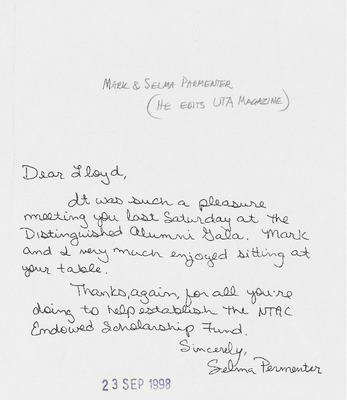 MARK & SELMA PARMENTER
(HE EDITS UTA MAGAZINE)
Dear Lloyd,
It was such a pleasure
meeting you last Saturday at the
Distinguished Alumni Gala. Mark
and I very much enjoyed sitting at
your table.
Thanks, again, for all you're
doing to help establish the NTAC
Endowed Scholarship Fund.
Sincerely,
Selma Permenter
23 SEP 1998